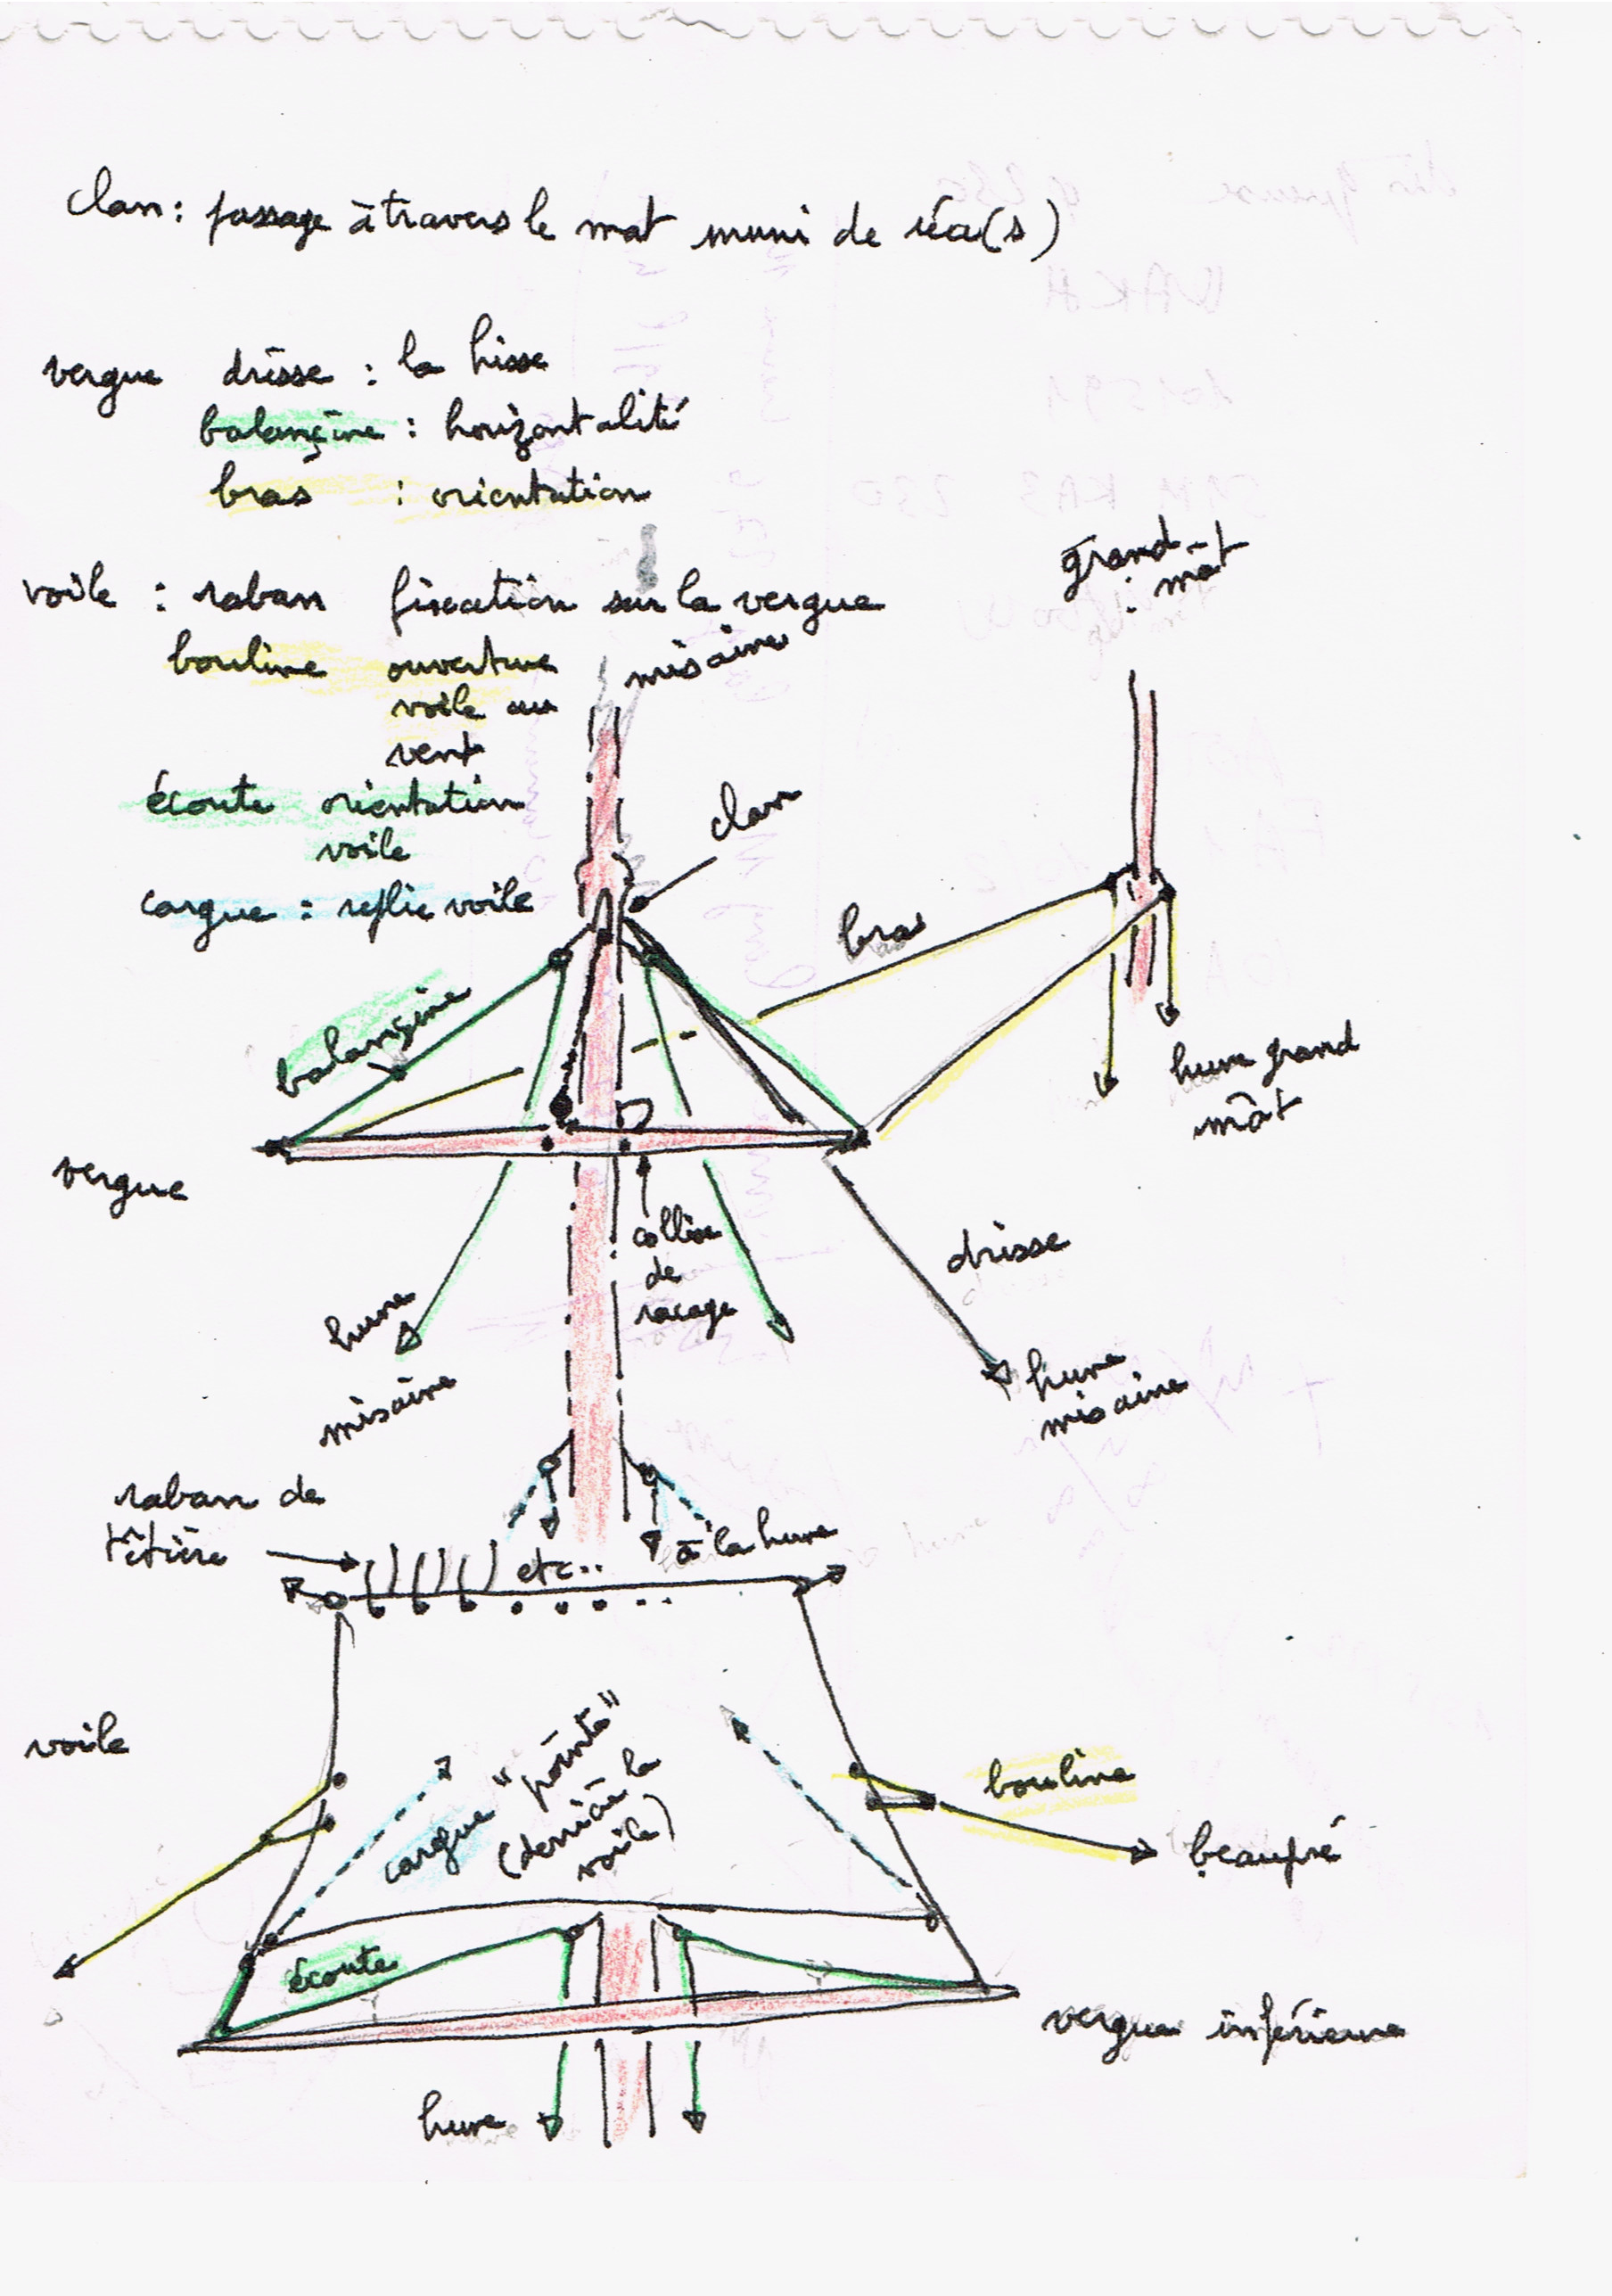 clan : passage à travers le mat muni de réa(s)
vergue drisse : la hisse
balançine : horizontalité
bras : orientation
grand mât
voile : raban fixation sur la vergue
bouline ouverture
voile au
vent
misaine
écoute orientation
voile
clan
cargue : replie voile
bra
balançine
hune grand
mât
vergue
collier
de
racage
drisse
hune
misaine
hune
misaine
raban de
têtière
etc..
à la hune
voile
cargue "pointe"
(derrière la
voile)
bouline
beaupré
écoute
vergue inférieure
hune